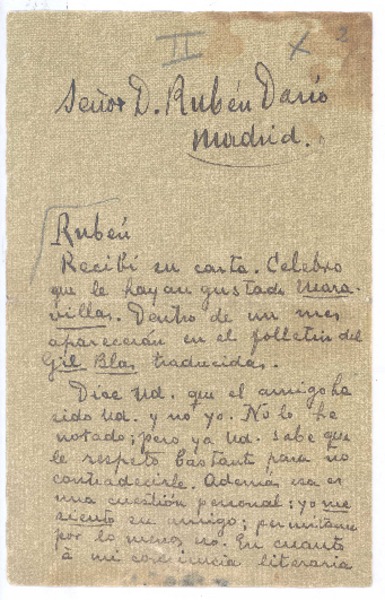 II
X 2
Señor D. Rubén Darío
Madrid.
Rubén
Recibí su carta. Celebro
que le hayan gustado Mara-
villas. Dentro de un mes
aparecerán en el folletin del
Gil Blas traducidas.
Dice Ud. que el amigo ha
sido Ud. y no yo. No lo he
notado; pero ya Ud. sabe que
le respeto bastante para no
contradecirle. Además esa es
una cuestión personal: yo me
siento su amigo; permitame
por lo menos no. En cuanto
à mi conciencia literaria